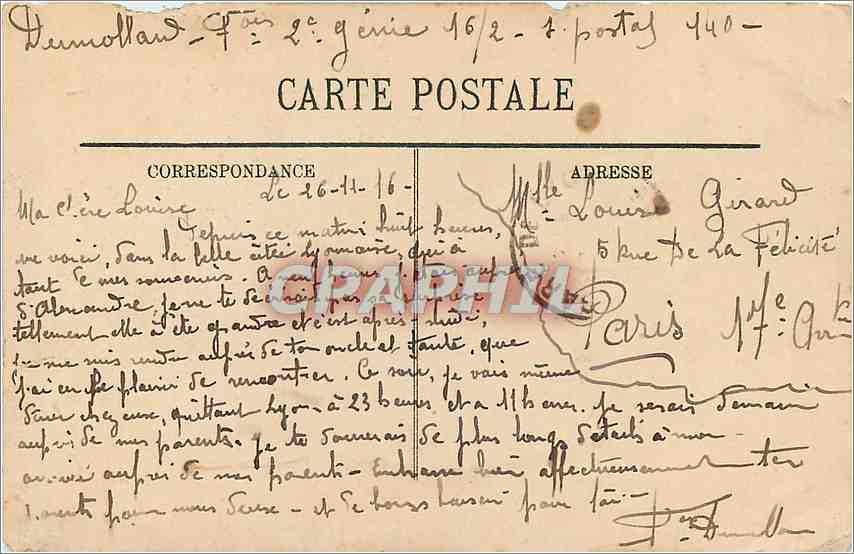 Dumollard - Fçois 2e génie 16/2 - s. postal 140 -
CARTE POSTALE
CORRESPONDANCE
ADRESSE
Le 26-11-16-
Ma chère Louise
Depuis ce matin huit heures,
me voici, dans la belle citée Lyonnaise, qui a
tant de mes souvenirs. A neuf heures j'étais auprès
d'Alexandre, je ne te décrirais pas sa surprise
tellement elle a été grande et c'est après midi,
je me suis rendu auprès de ton oncle et tante, que
j'ai eu le plaisir de rencontrer. Ce soir, je vais même
diner chez eux, quittant Lyon à 23 heures et a 11 heures. je serais demain
auprès de mes parents. je te donnerais de plus longs détails à mon
arrivée auprès de mes parents - Embrasse bien affectueusement tes
parents pour nous deux - et de bons baisers pour toi -
Fçois Dumollard
Mlle Louise Girard
5 Rue De La Félicité
Paris 17e Arr
CPAPHIL